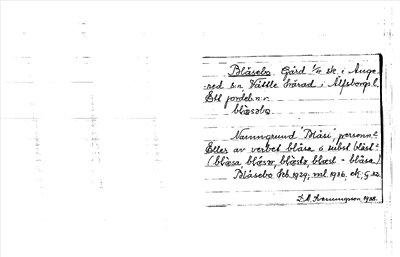 Blåsebo. Gård 1/4 sk. i Ange-
red s:n, Vättle härad i Älfsborgs l.
Ett jordeb:n:r.
blåsəbo
Namngrund Blåsi, personn.
Eller av verbet blåsa o subst blåst
(blåsa, blåsər, blåstə, blåst = blåsa.)
Blåsebo Jeb. 1929, ml. 1916, ek, G.
1928.